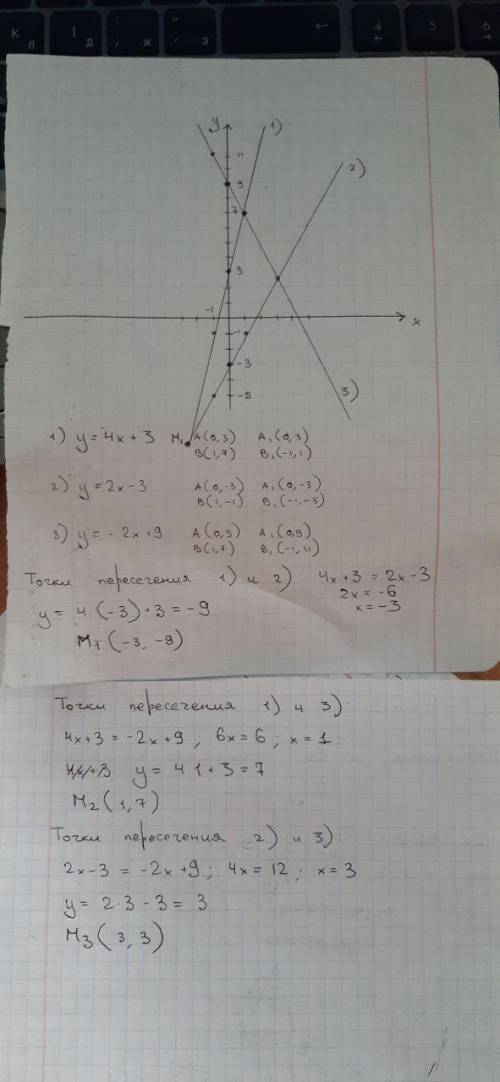 К Л
Д
Ж
Э
4
5
6
y
1)
2)
11
9
7
3
-1
x
-1
-3
-5
3)
1) y = 4x + 3 M₁ A(0,3) A₁(0,3)
B(1,7) B₁(-1,1)
2) y = 2x - 3 A(0,-3) A₁(0,-3)
B(1,-1) B₁(-1,-5)
3) y = - 2x + 9 A(0,9) A₁(0,9)
B(1,7) B₁(-1,11)
Точки пересечения 1) и 2): 4x+3 = 2x-3
2x = -6
y = 4(-3)+3 = -9 x = -3
M₁(-3, -9)
Точки пересечения 1) и 3):
4x+3 = -2x+9; 6x = 6; x = 1
y = 4·1+3 = 7
M₂(1,7)
Точки пересечения 2) и 3):
2x-3 = -2x+9; 4x = 12; x = 3
y = 2·3 - 3 = 3
M₃(3, 3)